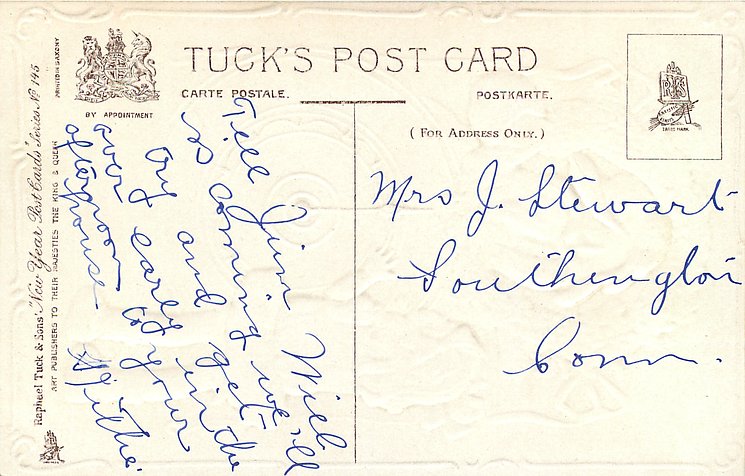 TUCK'S POST CARD
CARTE POSTALE.
POSTKARTE.
( FOR ADDRESS ONLY. )
BY APPOINTMENT
PRINTED IN SAXONY
Raphael Tuck & Sons' "New Year Post Cards" Series Nº 145
ART PUBLISHERS TO THEIR MAJESTIES THE KING & QUEEN
TRADE MARK.
Tell Jim Will
is coming we'll
try and get
over early in the
afternoon to your
house
Mrs J. Stewart
Southington
Conn.